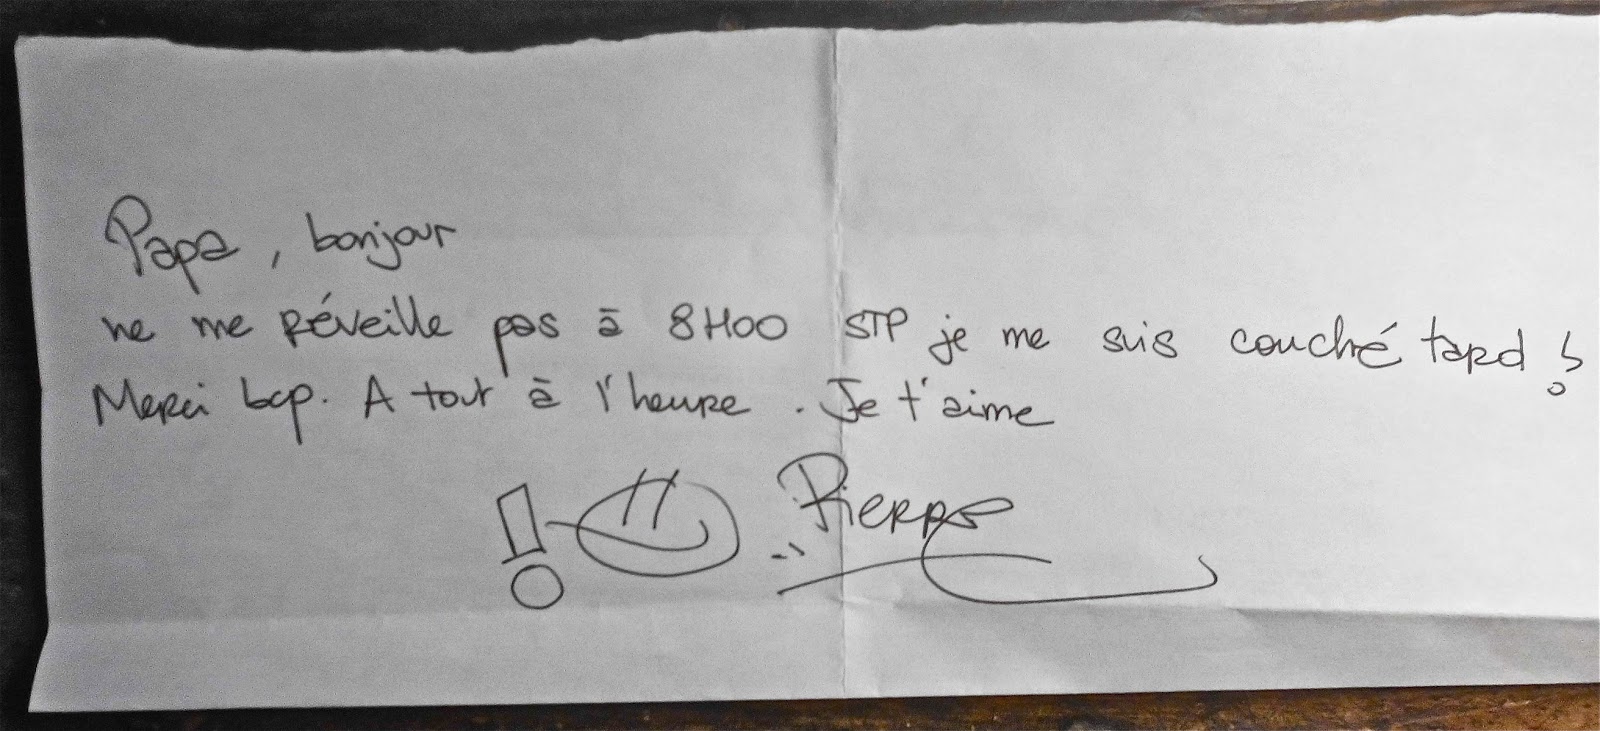 Papa, bonjour
ne me réveille pas à 8H00 STP je me suis couché tard !
Merci bcp. A tout à l'heure. Je t'aime
! Pierre